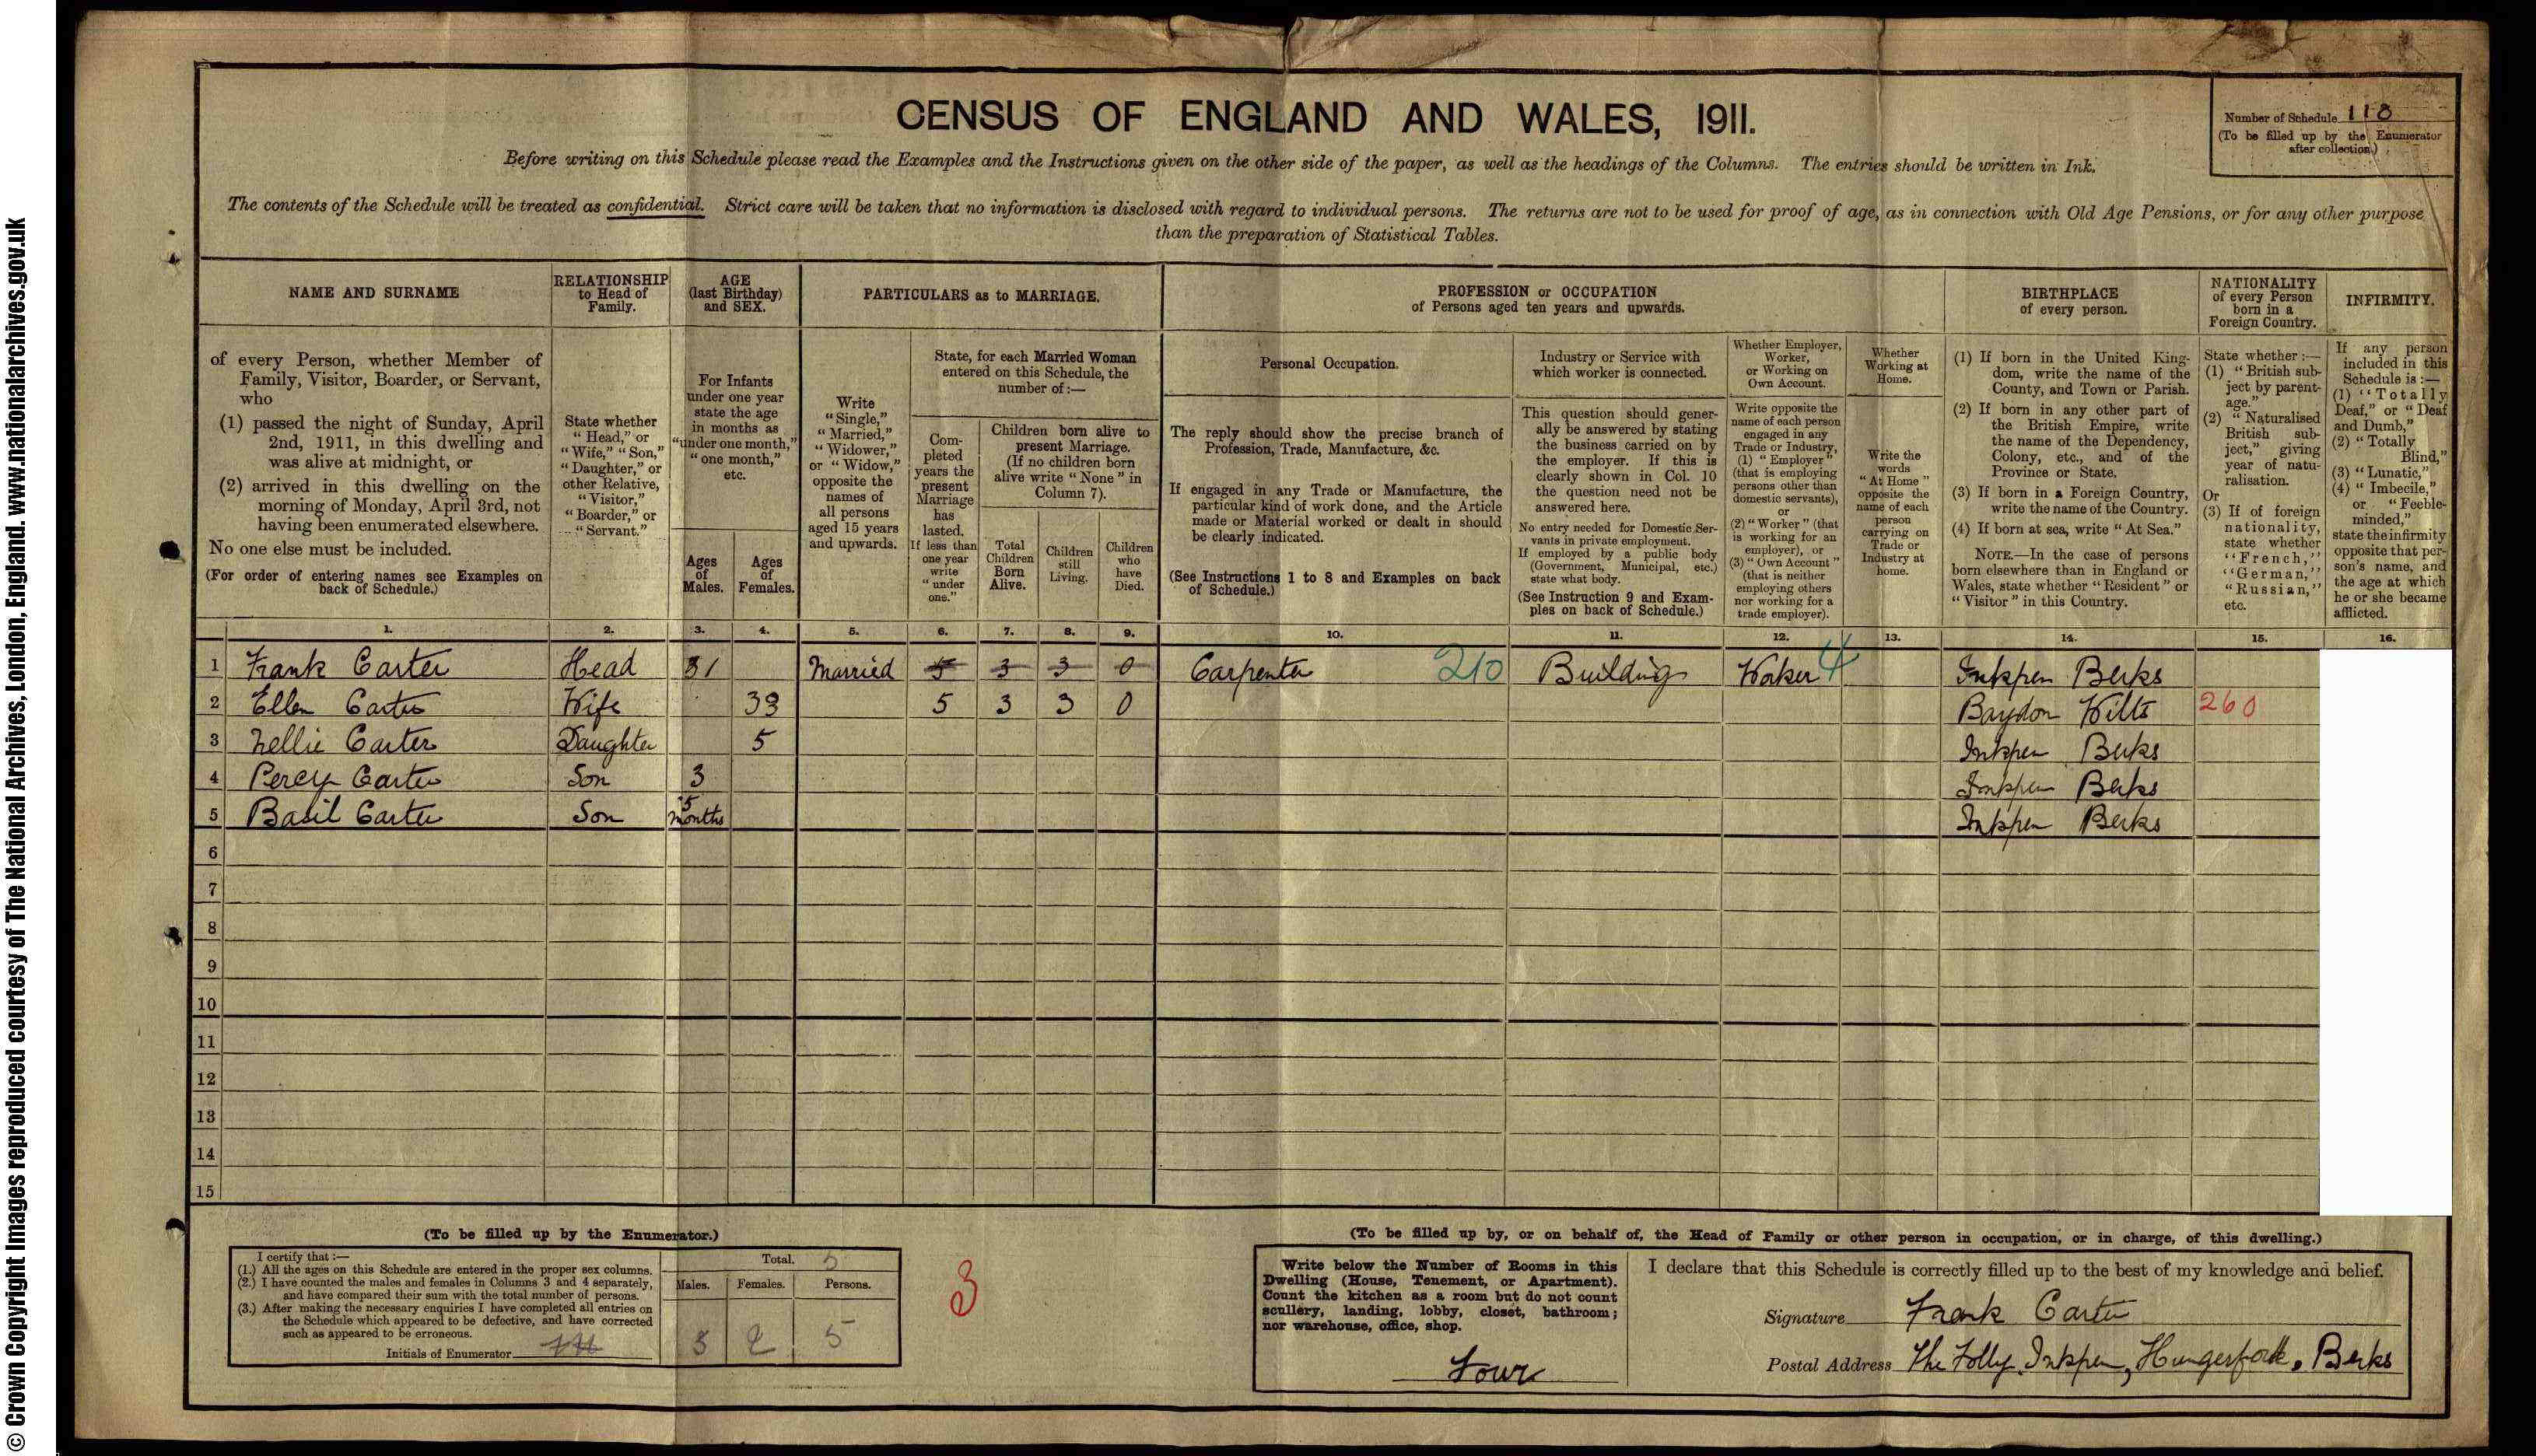 © Crown Copyright Images reproduced courtesy of The National Archives, London, England. www.nationalarchives.gov.uk
CENSUS OF ENGLAND AND WALES, 1911.
Number of Schedule 118
(To be filled up by the Enumerator
after collection.)
Before writing on this Schedule please read the Examples and the Instructions given on the other side of the paper, as well as the headings of the Columns. The entries should be written in Ink.
The contents of the Schedule will be treated as confidential. Strict care will be taken that no information is disclosed with regard to individual persons. The returns are not to be used for proof of age, as in connection with Old Age Pensions, or for any other purpose
than the preparation of Statistical Tables.
NAME AND SURNAME
of every Person, whether Member of
Family, Visitor, Boarder, or Servant,
who
(1) passed the night of Sunday, April
2nd, 1911, in this dwelling and
was alive at midnight, or
(2) arrived in this dwelling on the
morning of Monday, April 3rd, not
having been enumerated elsewhere.
No one else must be included.
(For order of entering names see Examples on
back of Schedule.)
RELATIONSHIP
to Head of
Family.
State whether
"Head," or
"Wife," "Son,"
"Daughter," or
other Relative,
"Visitor,"
"Boarder," or
"Servant."
AGE
(last Birthday)
and SEX.
For Infants
under one year
state the age
in months as
"under one month,"
"one month,"
etc.
Ages
of
Males.
Ages
of
Females.
PARTICULARS as to MARRIAGE.
Write
"Single,"
"Married,"
"Widower,"
or "Widow,"
opposite the
names of
all persons
aged 15 years
and upwards.
State, for each Married Woman
entered on this Schedule, the
number of:—
Com-
pleted
years the
present
Marriage
has
lasted.
If less than
one year
write
"under
one."
Children born alive to
present Marriage.
(If no children born
alive write "None" in
Column 7).
Total
Children
Born
Alive.
Children
still
Living.
Children
who
have
Died.
PROFESSION or OCCUPATION
of Persons aged ten years and upwards.
Personal Occupation.
The reply should show the precise branch of
Profession, Trade, Manufacture, &c.
If engaged in any Trade or Manufacture, the
particular kind of work done, and the Article
made or Material worked or dealt in should
be clearly indicated.
(See Instructions 1 to 8 and Examples on back
of Schedule.)
Industry or Service with
which worker is connected.
This question should gener-
ally be answered by stating
the business carried on by
the employer. If this is
clearly shown in Col. 10
the question need not be
answered here.
No entry needed for Domestic Ser-
vants in private employment.
If employed by a public body
(Government, Municipal, etc.)
state what body.
(See Instruction 9 and Exam-
ples on back of Schedule.)
Whether Employer,
Worker,
or Working on
Own Account.
Write opposite the
name of each person
engaged in any
Trade or Industry,
(1) "Employer"
(that is employing
persons other than
domestic servants),
or
(2) "Worker" (that
is working for an
employer), or
(3) "Own Account"
(that is neither
employing others
nor working for a
trade employer).
Whether
Working at
Home.
Write the
words
"At Home"
opposite the
name of each
person
carrying on
Trade or
Industry at
home.
BIRTHPLACE
of every person.
(1) If born in the United King-
dom, write the name of the
County, and Town or Parish.
(2) If born in any other part of
the British Empire, write
the name of the Dependency,
Colony, etc., and of the
Province or State.
(3) If born in a Foreign Country,
write the name of the Country.
(4) If born at sea, write "At Sea."
NOTE.—In the case of persons
born elsewhere than in England or
Wales, state whether "Resident" or
"Visitor" in this Country.
NATIONALITY
of every Person
born in a
Foreign Country.
State whether:—
(1) "British sub-
ject by parent-
age."
(2) "Naturalised
British sub-
ject," giving
year of natu-
ralisation.
Or
(3) If of foreign
nationality,
state whether
"French,"
"German,"
"Russian,"
etc.
INFIRMITY.
If any person
included in this
Schedule is:—
(1) "Totally
Deaf," or "Deaf
and Dumb,"
(2) "Totally
Blind,"
(3) "Lunatic,"
(4) "Imbecile,"
or "Feeble-
minded,"
state the infirmity
opposite that per-
son's name, and
the age at which
he or she became
afflicted.
1. 2. 3. 4. 5. 6. 7. 8. 9. 10. 11. 12. 13. 14. 15. 16.
1 Frank Carter Head 31 Married 5 3 3 0 Carpenter 210 Building Worker 4 Inkpen Berks
2 Ellen Carter Wife 33 5 3 3 0 Baydon Wilts 260
3 Nellie Carter Daughter 5 Inkpen Berks
4 Percy Carter Son 3 Inkpen Berks
5 Basil Carter Son 5 months Inkpen Berks
6
7
8
9
10
11
12
13
14
15
(To be filled up by the Enumerator.)
I certify that:—
(1.) All the ages on this Schedule are entered in the proper sex columns.
(2.) I have counted the males and females in Columns 3 and 4 separately,
and have compared their sum with the total number of persons.
(3.) After making the necessary enquiries I have completed all entries on
the Schedule which appeared to be defective, and have corrected
such as appeared to be erroneous.
Initials of Enumerator
Total. 5
Males. Females. Persons.
3 2 5
3
(To be filled up by, or on behalf of, the Head of Family or other person in occupation, or in charge, of this dwelling.)
Write below the Number of Rooms in this
Dwelling (House, Tenement, or Apartment).
Count the kitchen as a room but do not count
scullery, landing, lobby, closet, bathroom;
nor warehouse, office, shop.
Four
I declare that this Schedule is correctly filled up to the best of my knowledge and belief.
Signature Frank Carter
Postal Address The Folly Inkpen, Hungerford, Berks